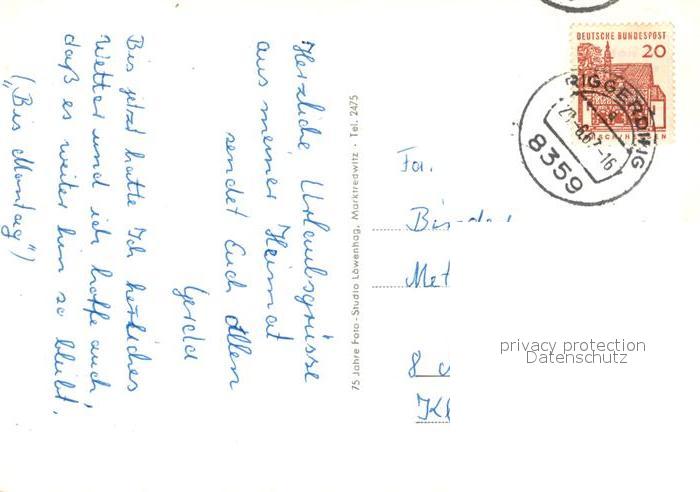 Herzliche Urlaubsgrüsse
aus meiner Heimat
sendet Euch allen
Gerda
Bis jetzt hatte ich herrliches
Wetter und ich hoffe auch,
daß es weiter hin so bleibt.
("Bis Montag")
75 Jahre Foto-Studio Löwenhag, Marktredwitz · Tel. 2475
DEUTSCHE BUNDESPOST
20
RIGGERDING
-16
8359
Fa.
Met
8
Kl
privacy protection
Datenschutz